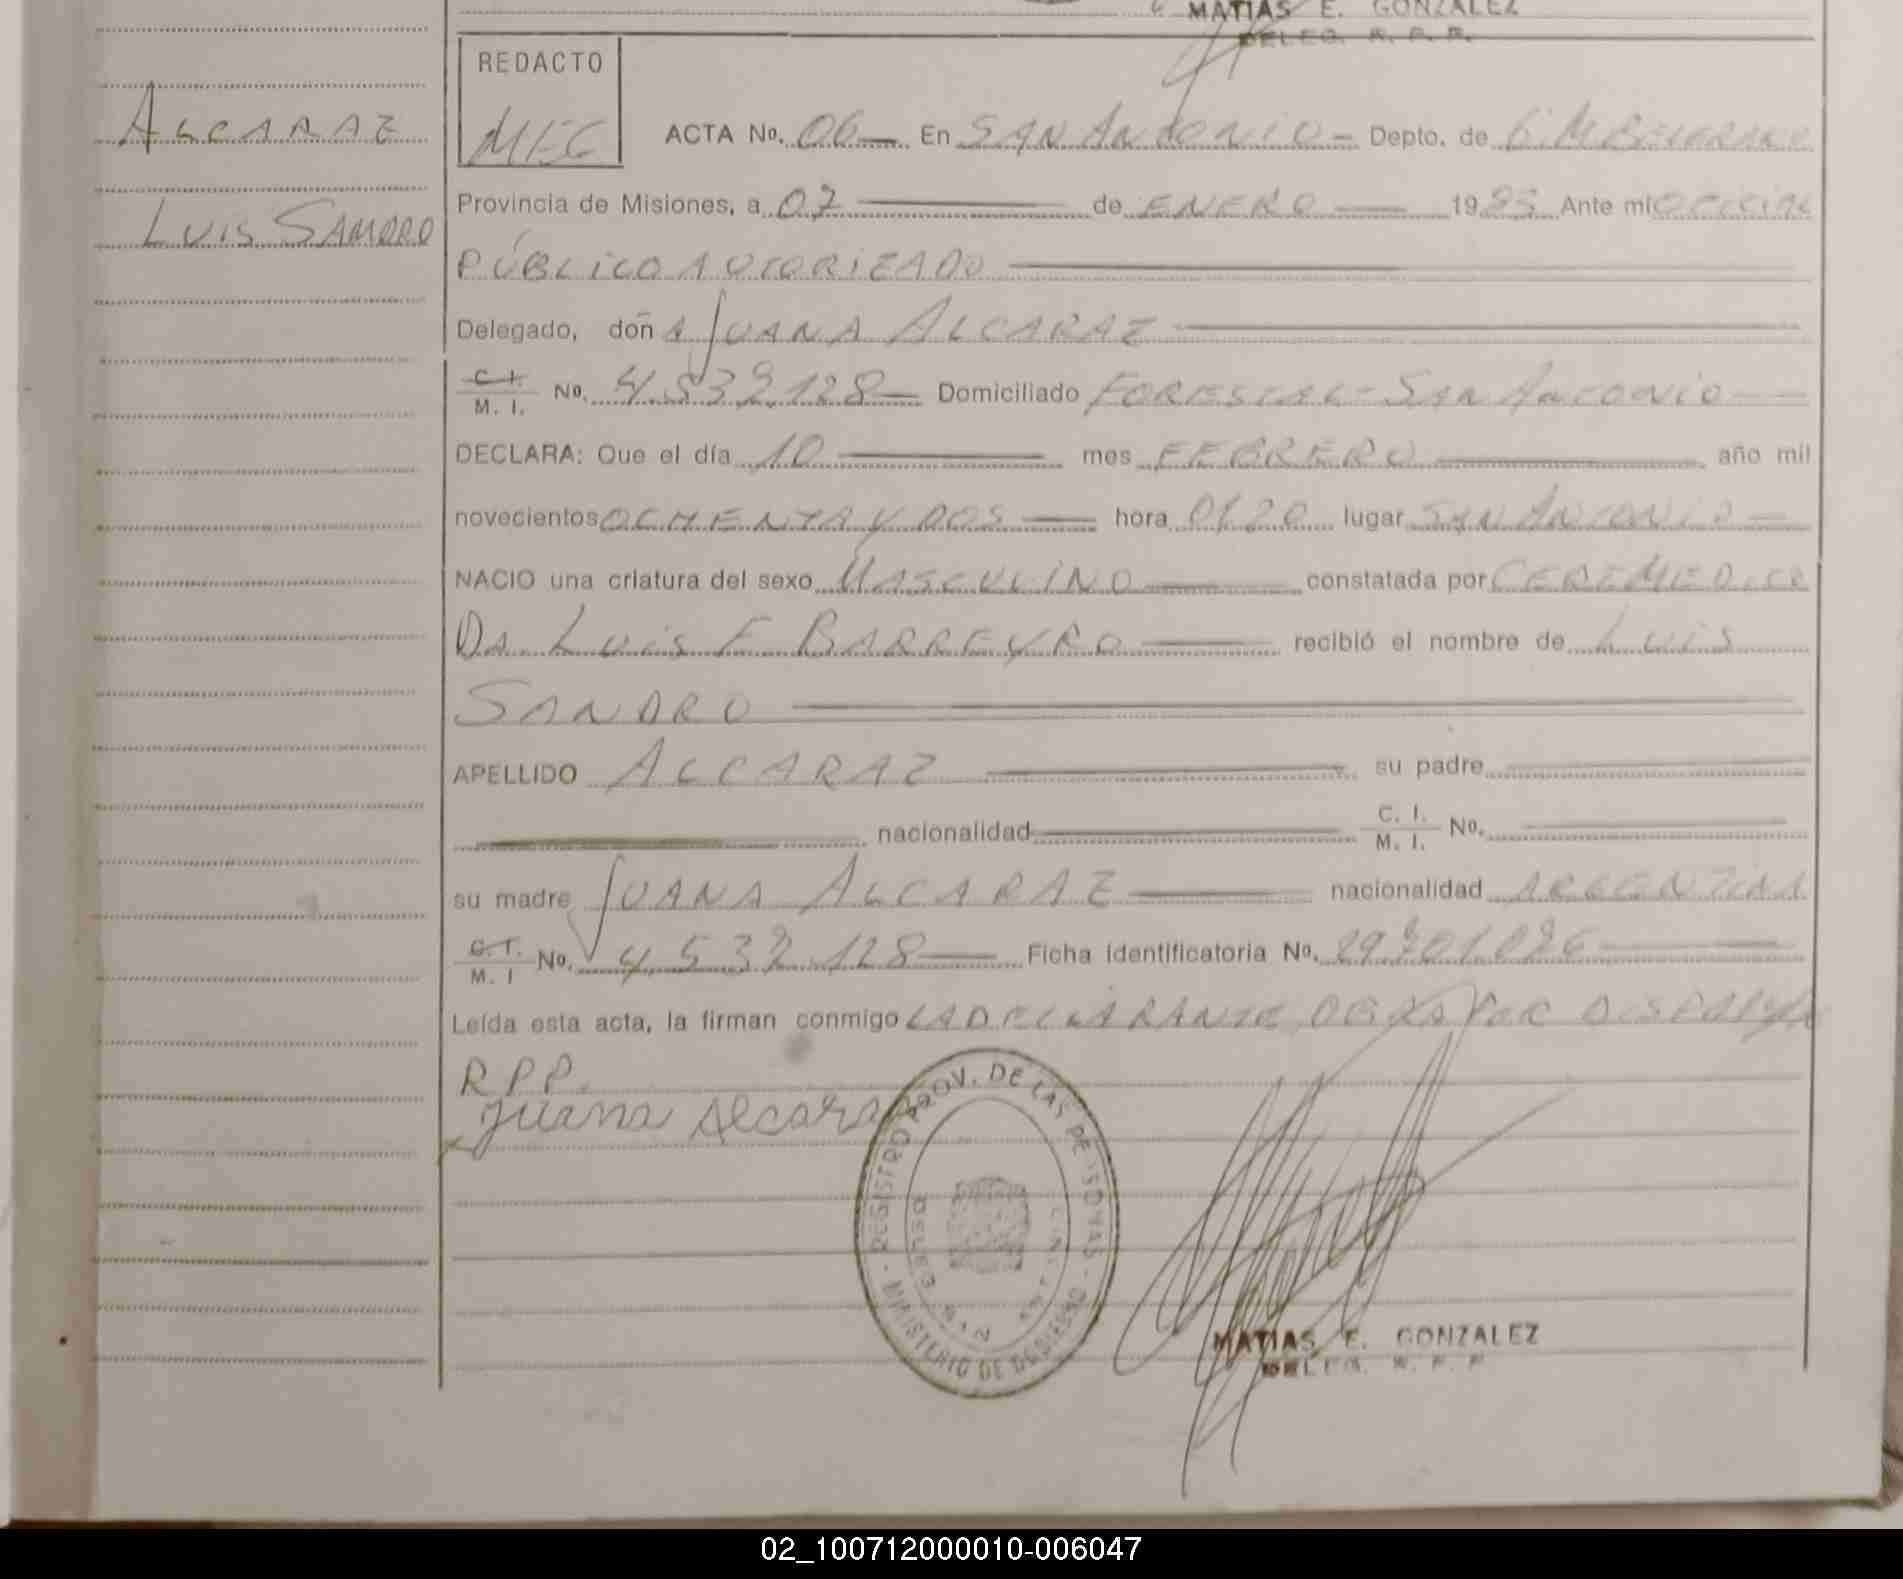 MATIAS E. GONZALEZ
DELEG. R. P. P.
REDACTO
MEG
ALCARAZ
LUIS SANDRO
ACTA No. 06 En SAN ANTONIO Depto. de G. M BELGRANO
Provincia de Misiones, a 07 de ENERO 1983 Ante mi OFICIAL
PÚBLICO AUTORIZADO
Delegado, doñ A JUANA ALCARAZ
C. I.
M. I. No. 4.532.128 Domiciliado FORESTAL - SAN ANTONIO
DECLARA: Que el día 10 mes FEBRERO año mil
novecientos OCHENTA Y DOS hora 01.20 lugar SAN ANTONIO
NACIO una criatura del sexo MASCULINO constatada por CERT MEDICO
DR. LUIS F BARREYRO recibió el nombre de LUIS
SANDRO
APELLIDO ALCARAZ su padre
nacionalidad C. I.
M. I. No.
su madre JUANA ALCARAZ nacionalidad ARGENTINA
C. I.
M. I No. 4.532.128 Ficha identificatoria No.
Leída esta acta, la firman conmigo LA DECLARANTE POR
RPP.
Juana Alcaraz
REGISTRO PROV. DE LAS PERSONAS
MINISTERIO DE GOBIERNO
SAN ANTONIO
MATIAS E. GONZALEZ
DELEG. R. P. P
02_100712000010-006047